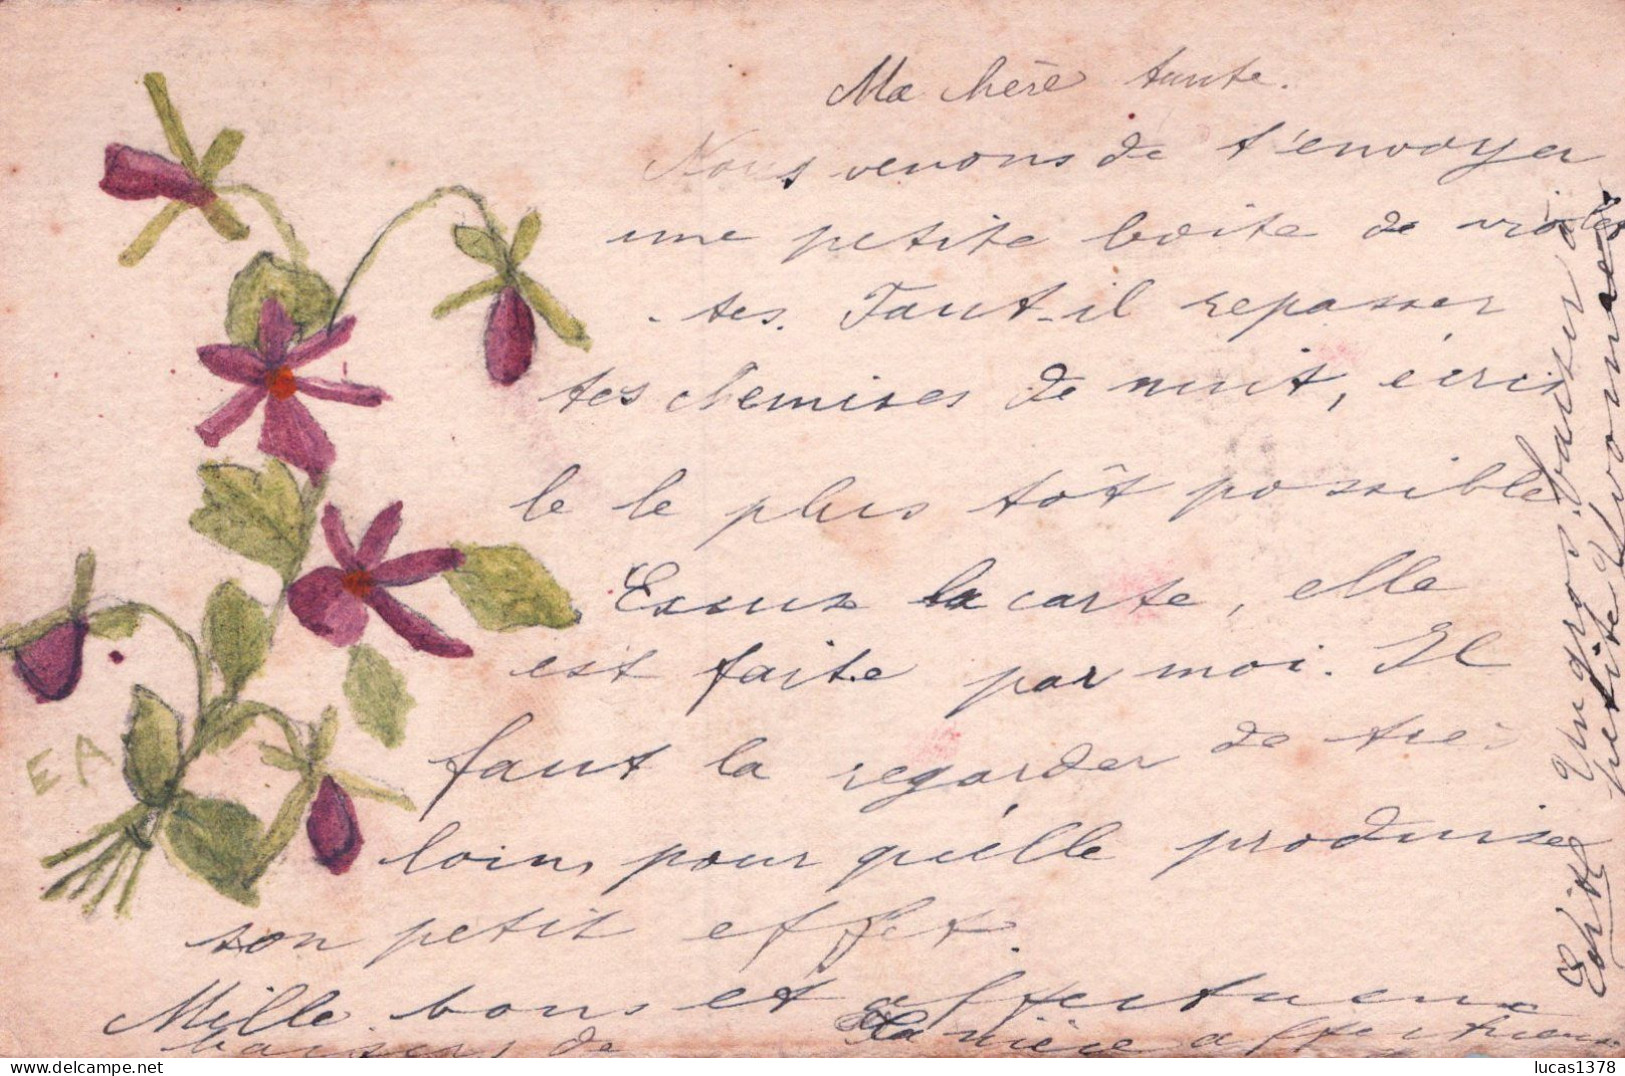 Ma chère tante.
Nous venons de t'envoyer
une petite boite de viole
-tes. Faut-il repasser
tes chemises de nuit, écris
le le plus tôt possible
Excuse la carte, elle
est faite par moi. Il
faut la regarder de très
loin, pour qu'elle produise
son petit effet.
Mille bons et affectueux
baisers de ta nièce affectueuse
Edith
Un gros baiser à
petite Yvonne
EA
lucas1378